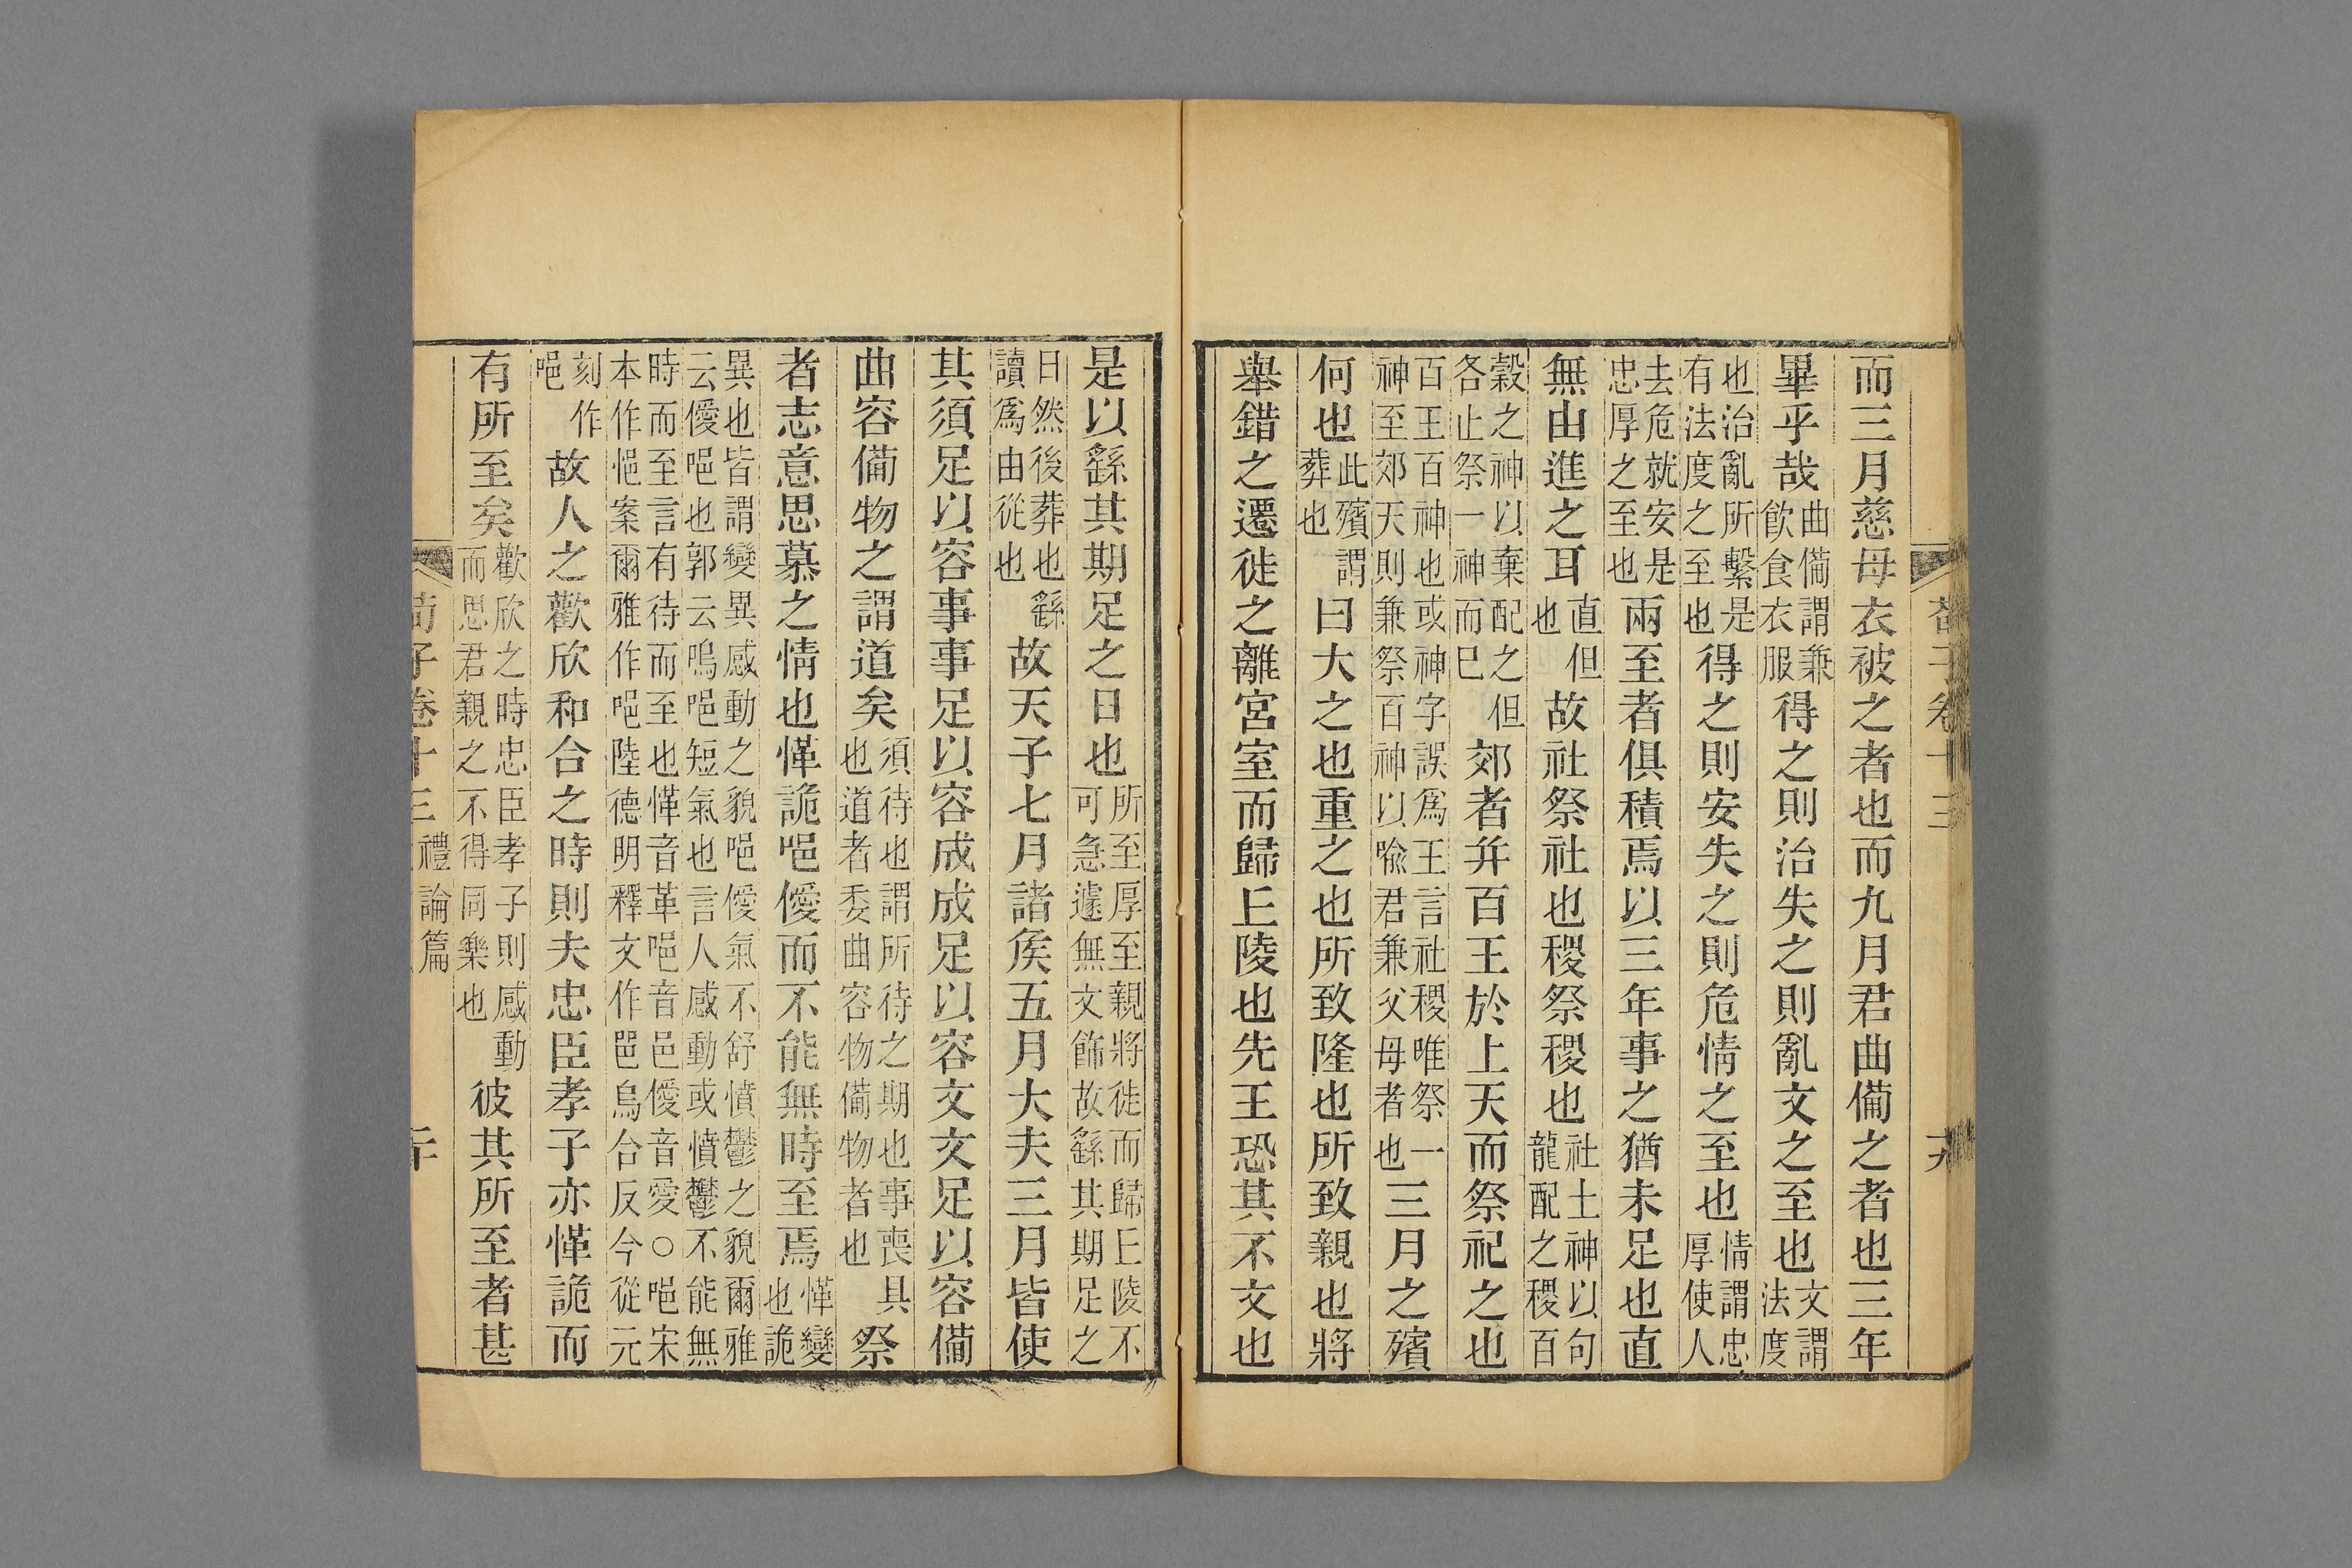 荀子卷十三
而三月慈母衣被之者也而九月君曲備之者也三年
畢乎哉曲備謂兼飮食衣服得之則治失之則亂文之至也文謂法度
也治亂所繫是有法度之至也得之則安失之則危情之至也情謂忠厚使人
去危就安是忠厚之至也兩至者俱積焉以三年事之猶未足也直
無由進之耳直但也故社祭社也稷祭稷也社土神以句龍配之稷百
穀之神以棄配之但各止祭一神而巳郊者并百王於上天而祭祀之也
百王百神也或神字誤爲王言社稷唯祭一神至郊天則兼祭百神以喩君兼父母者也三月之殯
何也此殯謂葬也曰大之也重之也所致隆也所致親也將
舉錯之遷徙之離宮室而歸丘陵也先王恐其不文也
是以繇其期足之日也所至厚至親將徙而歸丘陵不可急遽無文飾故繇其期足之
日然後葬也繇讀爲由從也故天子七月諸矦五月大夫三月皆使
其須足以容事事足以容成成足以容文文足以容備
曲容備物之謂道矣須待也謂所待之期也事喪具也道者委曲容物備物者也祭
者志意思慕之情也愅詭唈僾而不能無時至焉愅變也詭
異也皆謂變異感動之貌唈僾氣不舒憤鬱之貌爾雅云僾唈也郭云嗚唈短氣也言人感動或憤鬱不能無
時而至言有待而至也愅音革唈音邑僾音愛○唈宋本作悒案爾雅作唈陸德明釋文作邑烏合反今從元
刻作唈故人之歡欣和合之時則夫忠臣孝子亦愅詭而
有所至矣歡欣之時忠臣孝子則感動而思君親之不得同樂也彼其所至者甚
荀子卷十三 禮論篇